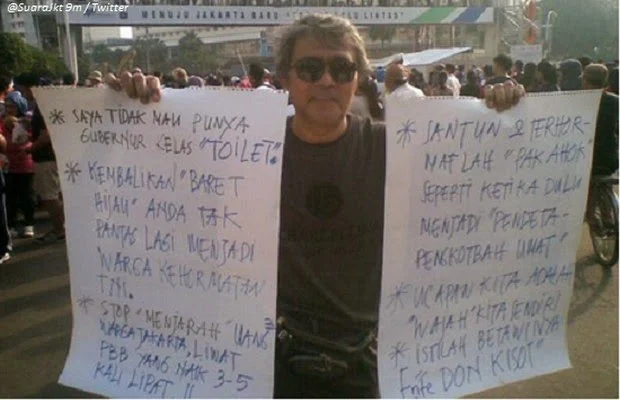 @SuaraJkt 9m / Twitter
MENUJU JAKARTA BARU "
LALU LINTAS"
* SAYA TIDAK MAU PUNYA
GUBERNUR KELAS "TOILET".
* KEMBALIKAN "BARET
HIJAU" ANDA TAK
PANTAS LAGI MENJADI
WARGA KEHORMATAN
TNI.
* STOP "MENJARAH" UANG
WARGA JAKARTA, LIWAT
PBB YANG NAIK 3-5
KALI LIPAT. !!
* SANTUN & TERHOR-
MATLAH "PAK AHOK"
SEPERTI KETIKA DULU
MENJADI "PENDETA-
PENGKOTBAH UMAT"
* UCAPAN KITA ADALAH
"WAJAH" KITA SENDIRI
* ISTILAH BETAWINYA
Ente DON KISOT"